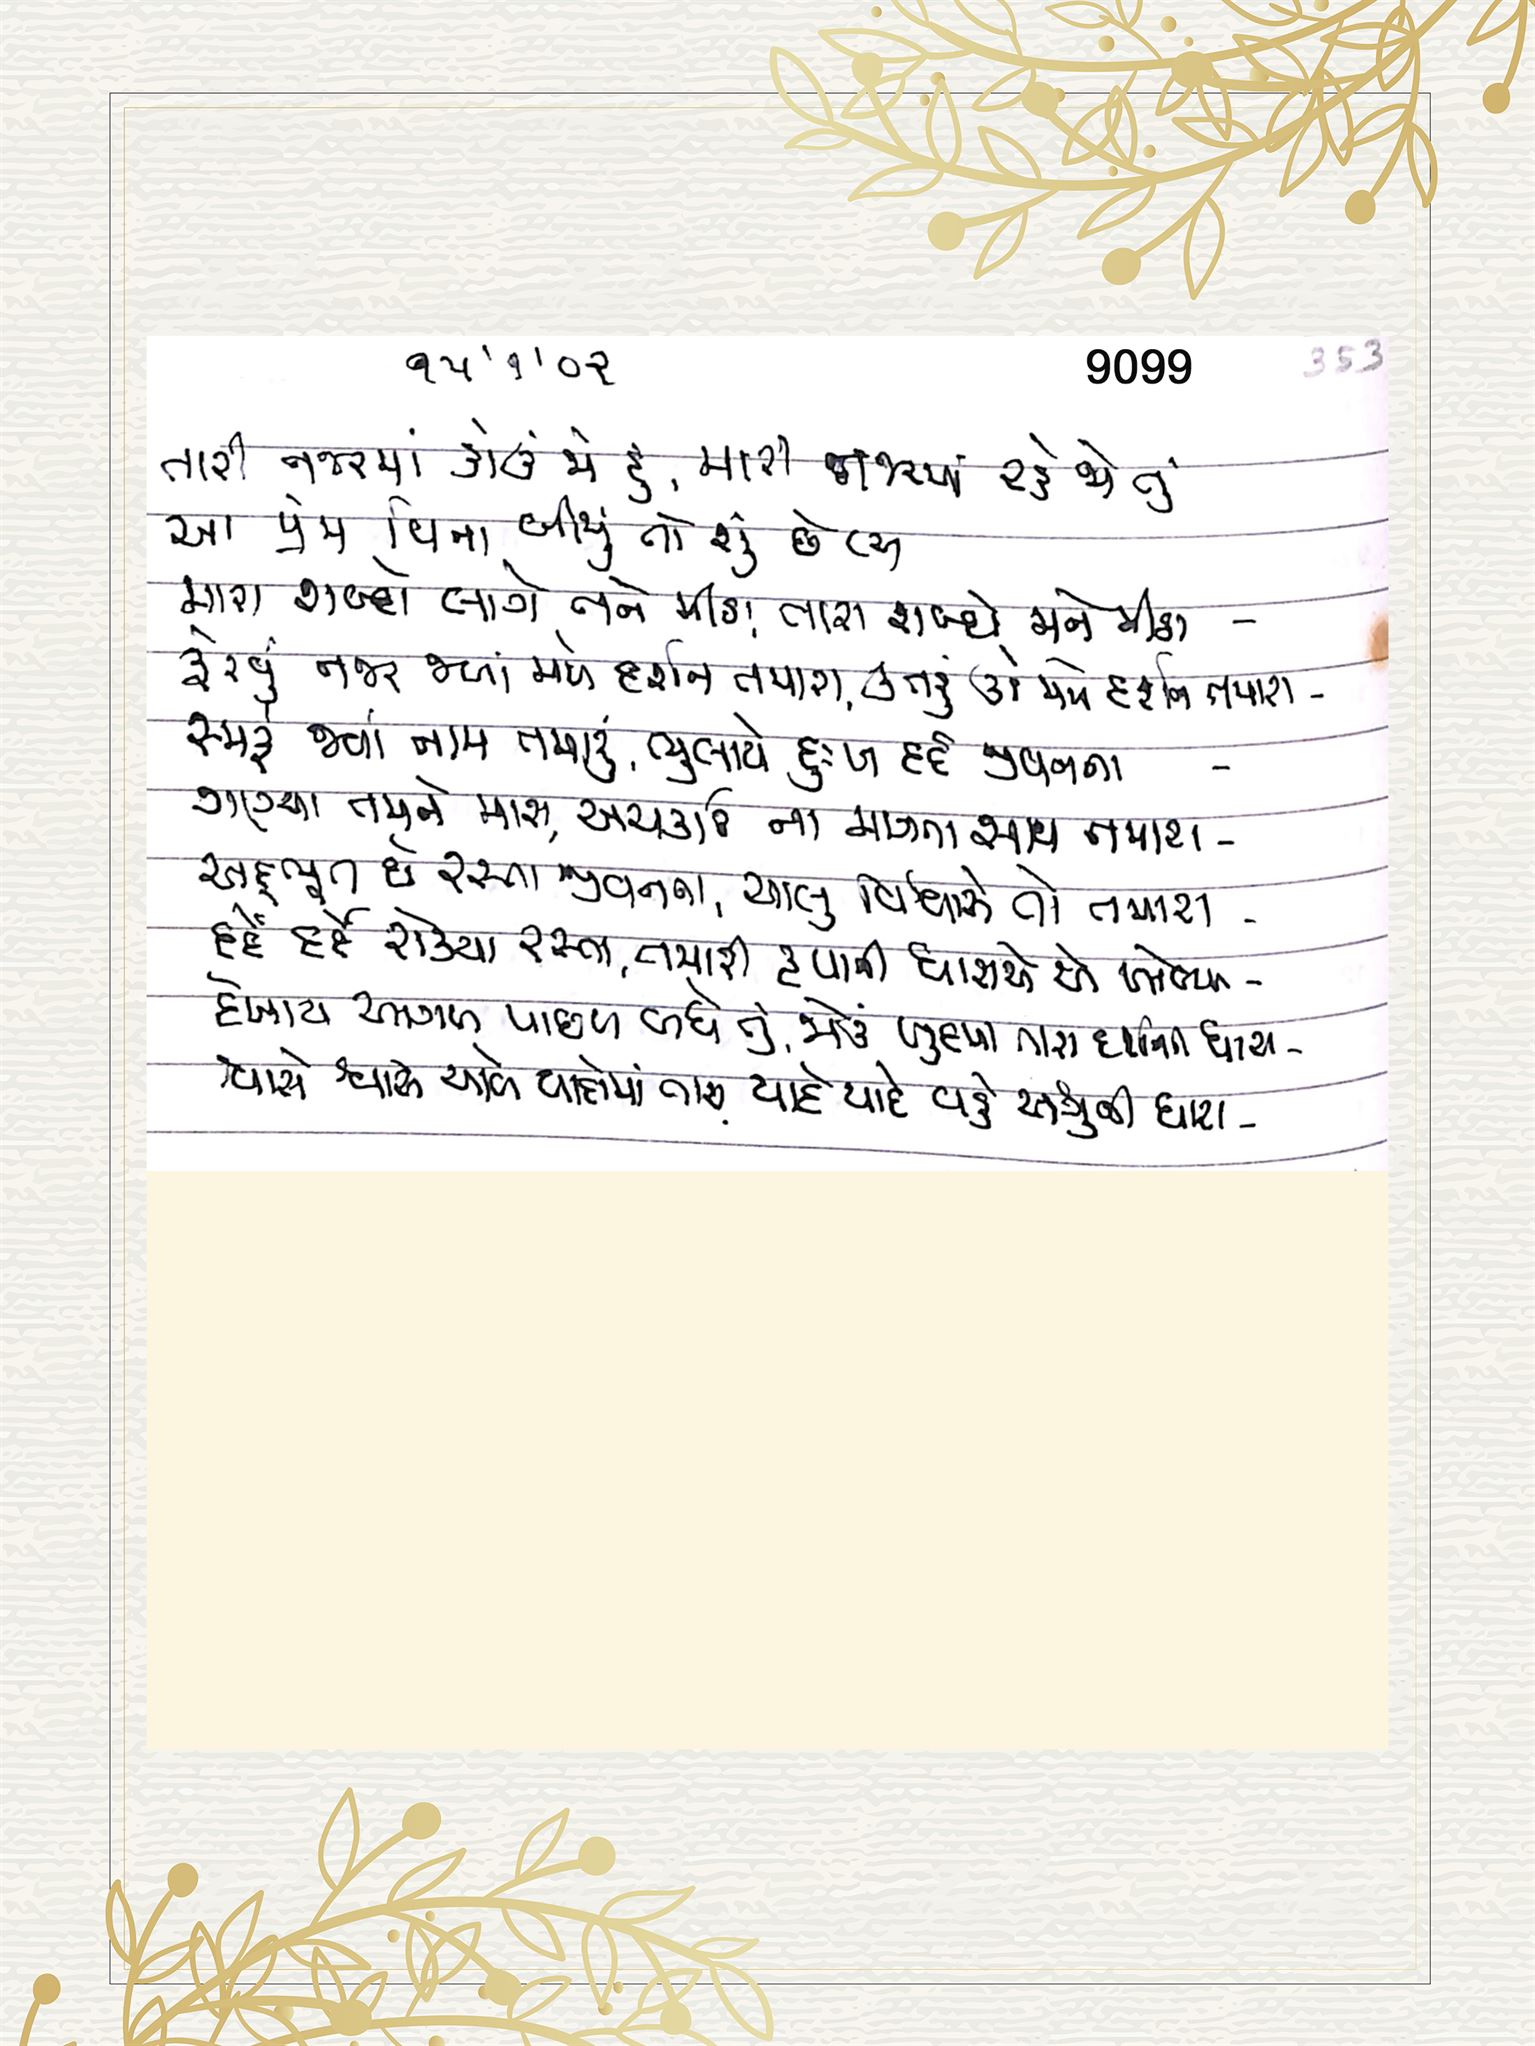 ૧૫'૧'૦૨
9099
353
તારી નજરમાં હોઉં જો હું, મારી નજરમાં રહે જો તું
આ પ્રેમ વિના બીજું તો શું છે
મારા શબ્દો લાગે તને મીઠા, તારા શબ્દો મને મીઠા -
ફેરવું નજર જ્યાં મળે દર્શન તમારા, ઉતરું મળે દર્શન તમારા -
સ્મરું જ્યાં નામ તમારું, ભુલાયે દુઃખ દર્દ જીવનના -
ગણ્યા તમને મારા, અચકાઈ ના માગતા સાથ તમારા -
અદ્ભૂત છે રસ્તા જીવનના, ચાલુ વિશ્વાસે તો તમારા -
દર્દે દર્દે રોક્યા રસ્તા, તમારી કૃપાની ધારાએ એ ખોલ્યા -
દેખાય આગળ પાછળ બધે તું, જોઉં હૃદયમાં તારા દર્શનની ધારા -
શ્વાસે શ્વાસે યાદોમાં તારી, યાદે યાદે વહે અશ્રુની ધારા -